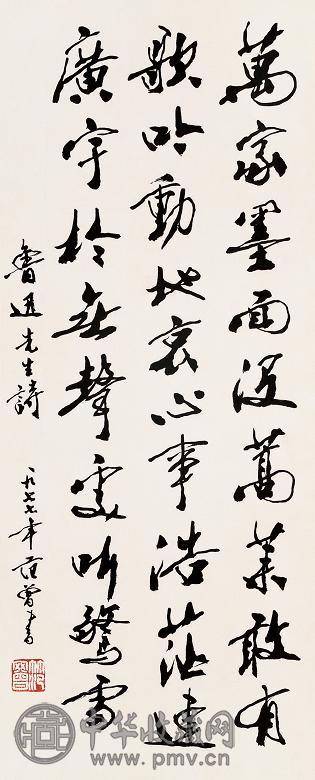 萬家墨面没蒿萊敢有
歌吟動地哀心事浩茫連
廣宇於無聲處听驚雷
魯迅先生詩
一九七七年范曾書
中华收藏网
www.pmv.cn